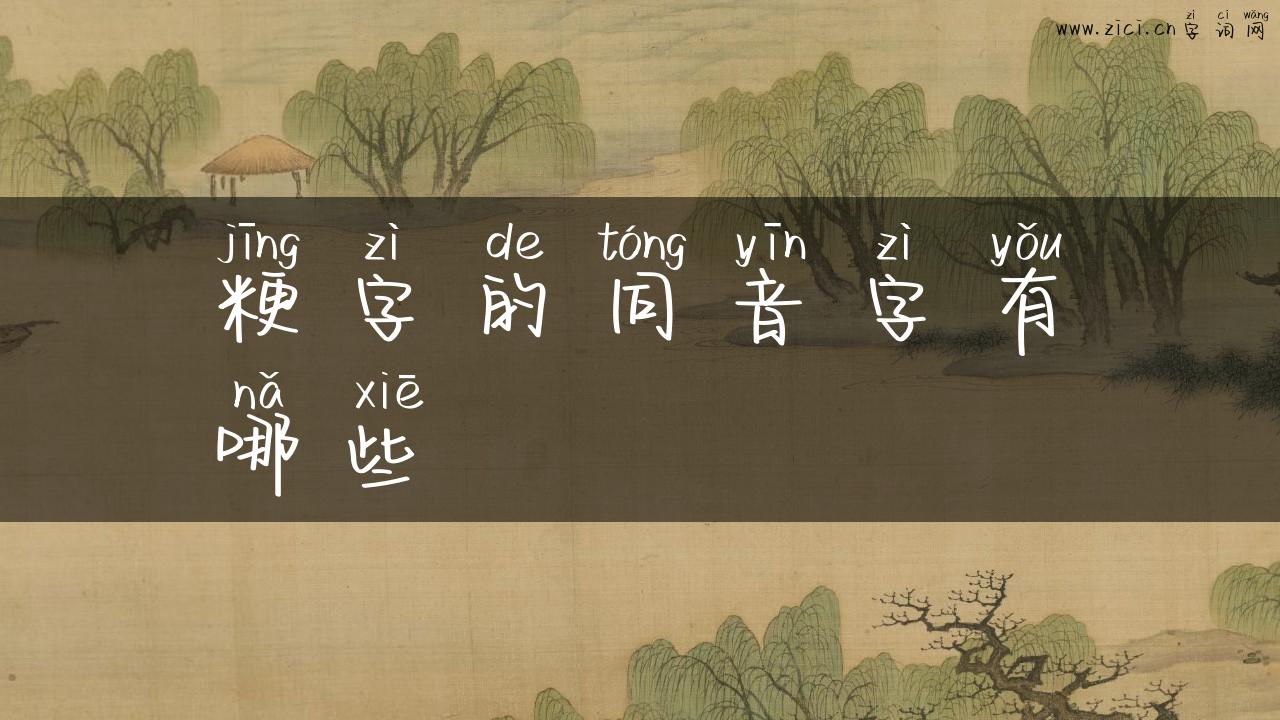 zì cí wǎng
www.zici.cn 字 词 网
jīng zì de tóng yīn zì yǒu
粳 字 的 同 音 字 有
nǎ xiē
哪 些